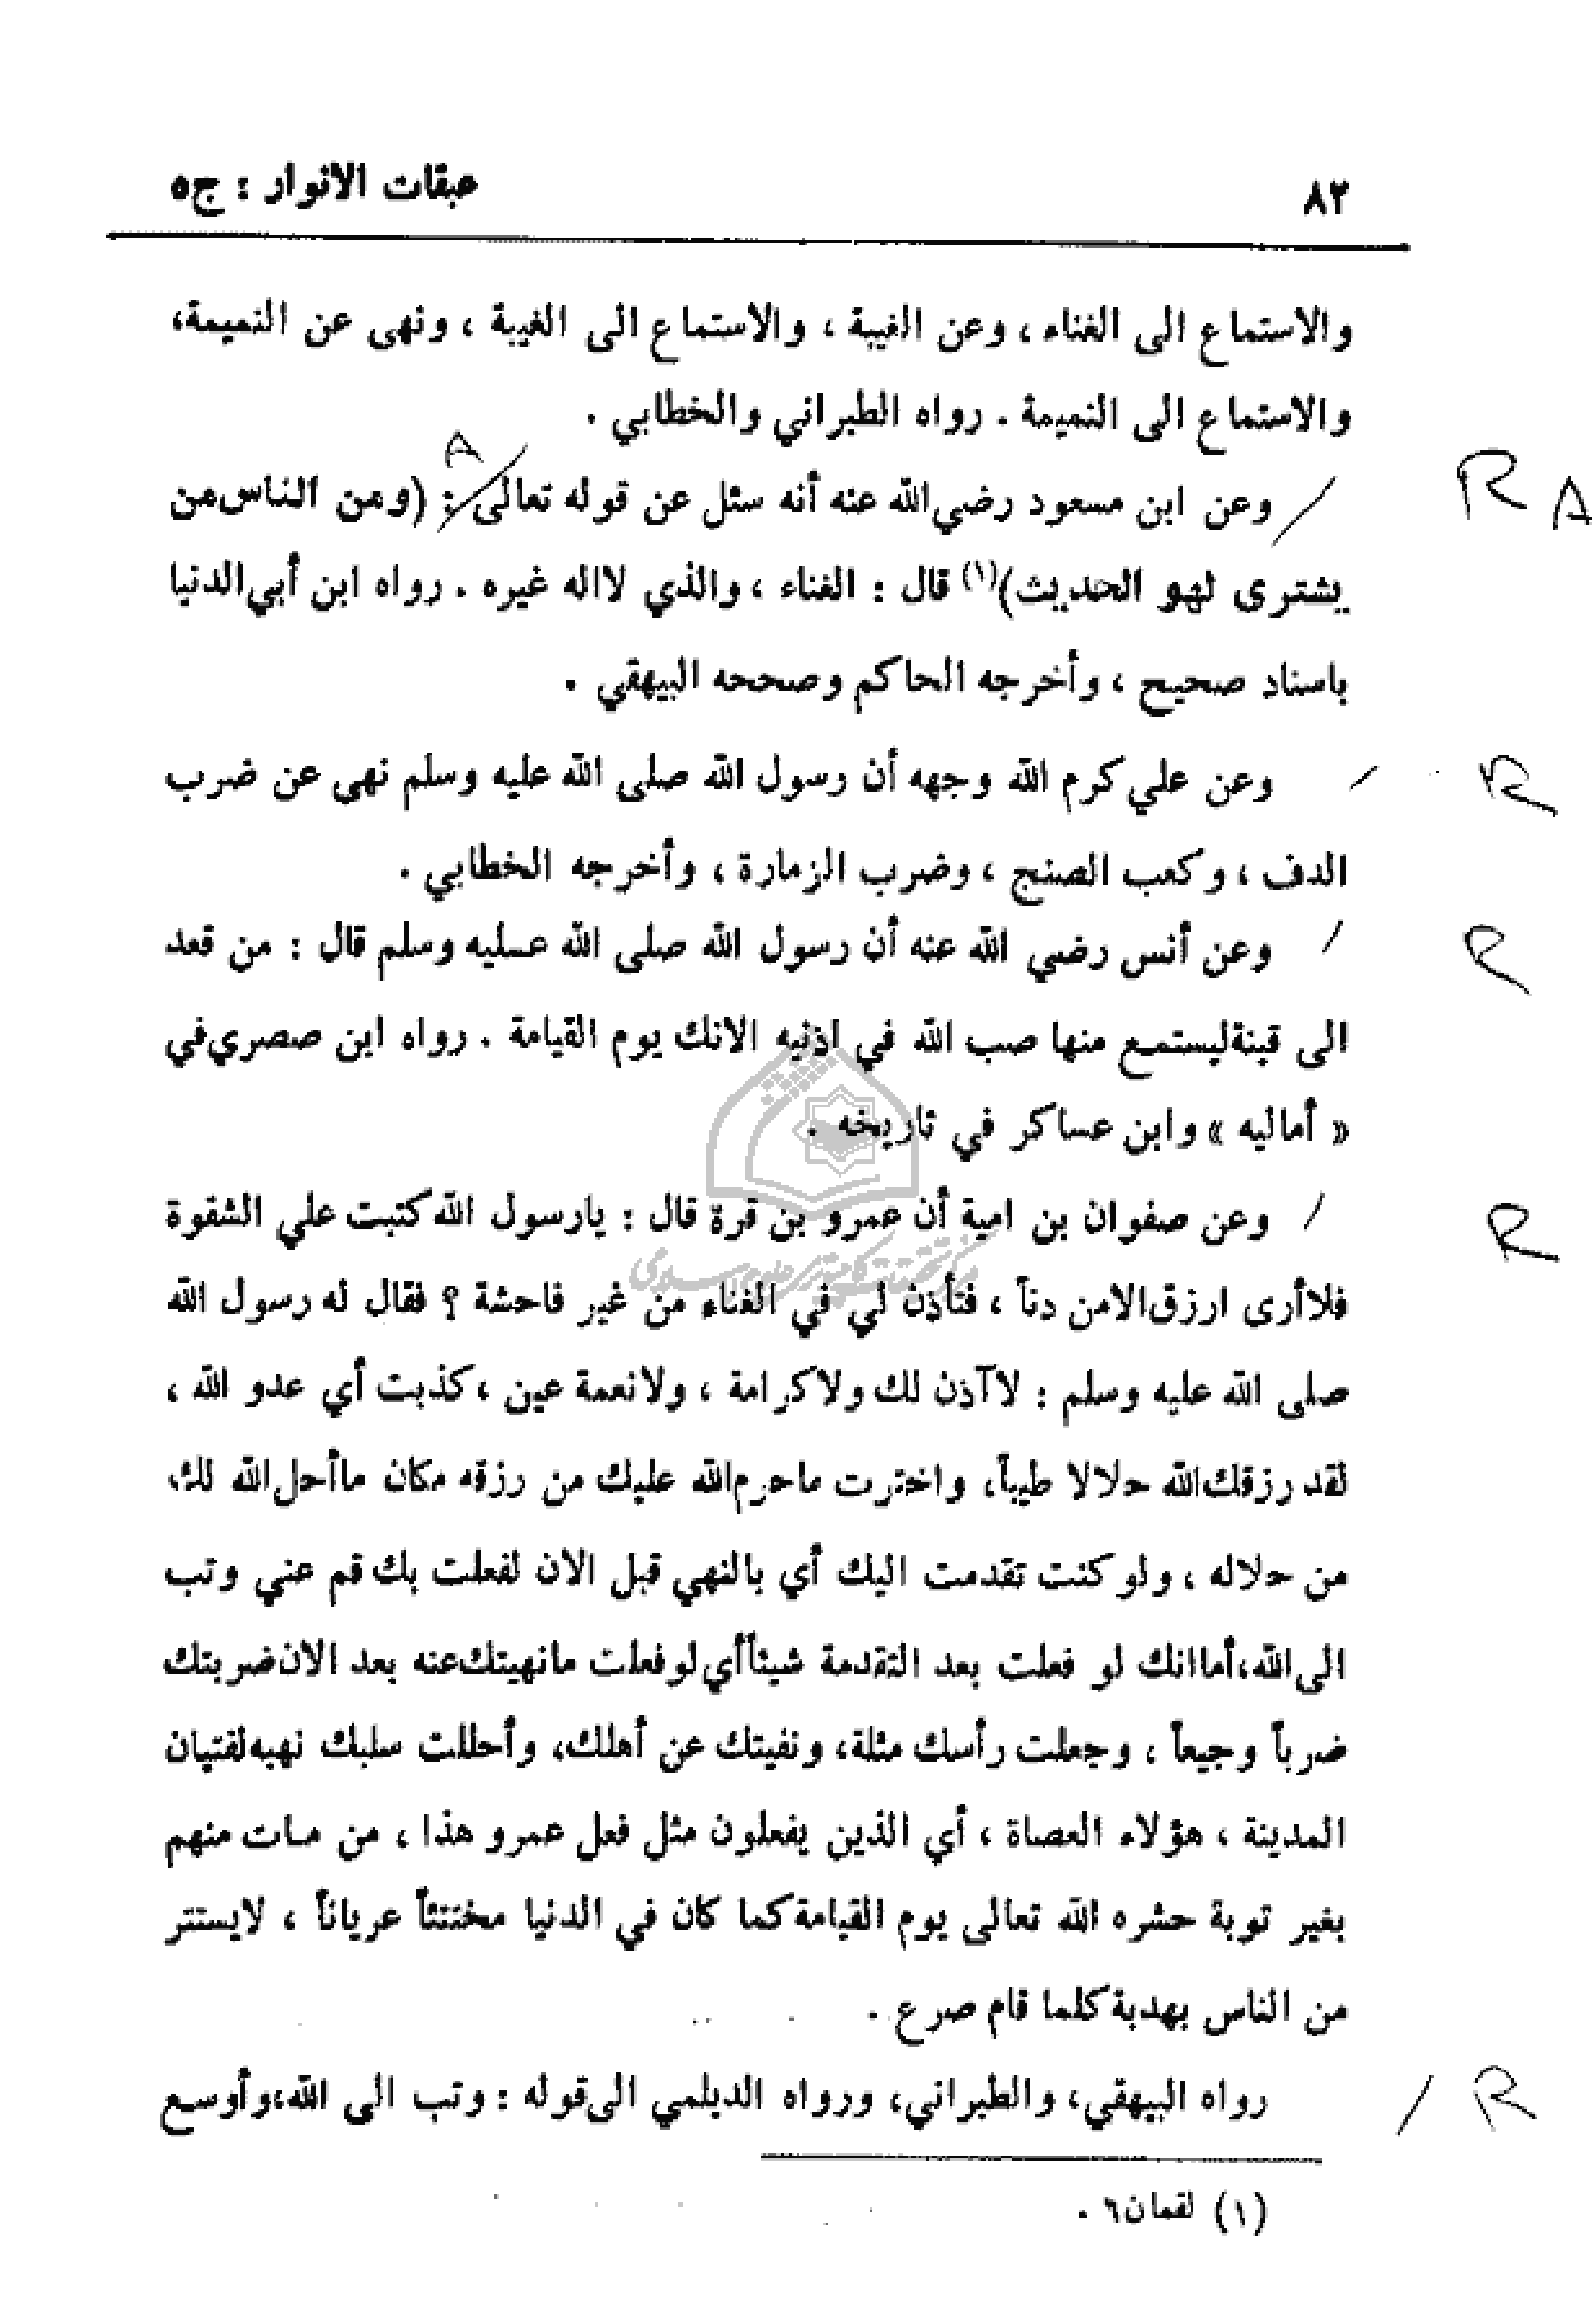 ٨٢
عبقات الانوار : ج٥
والاستماع الى الغناء ، وعن الغيبة ، والاستماع الى الغيبة ، ونهى عن النميمة،
والاستماع الى النميمة . رواه الطبراني والخطابي .
A
وعن ابن مسعود رضي الله عنه أنه سئل عن قوله تعالى : (ومن الناس من
R A
يشترى لهو الحديث)(١) قال : الغناء ، والذي لااله غيره . رواه ابن أبي الدنيا
باسناد صحيح ، وأخرجه الحاكم وصححه البيهقي .
وعن علي كرم الله وجهه أن رسول الله صلى الله عليه وسلم نهى عن ضرب
R
الدف ، وكعب الصنج ، وضرب الزمارة ، وأخرجه الخطابي .
وعن أنس رضي الله عنه أن رسول الله صلى الله عليه وسلم قال : من قعد
R
الى قينة ليستمع منها صب الله في اذنيه الانك يوم القيامة . رواه ابن صصري في
« أماليه » وابن عساكر في تاريخه .
وعن صفوان بن امية أن عمرو بن قرة قال : يارسول الله كتبت علي الشقوة
R
فلاأرى ارزق الامن دنآ ، فتأذن لي في الغناء من غير فاحشة ؟ فقال له رسول الله
صلى الله عليه وسلم : لاآذن لك ولاكرامة ، ولانعمة عين ، كذبت أي عدو الله ،
لقد رزقك الله حلالا طيبآ، واخترت ماحرم الله عليك من رزقه مكان ماأحل الله لك
من حلاله ، ولو كنت تقدمت اليك أي بالنهي قبل الان لفعلت بك قم عني وتب
الى الله،أماانك لو فعلت بعد التقدمة شيئآأي لو فعلت مانهيتك عنه بعد الان ضربتك
ضربآ وجيعآ ، وجعلت رأسك مثلة، ونفيتك عن أهلك، وأحللت سلبك نهبه لفتيان
المدينة ، هؤلاء العصاة ، أي الذين يفعلون مثل فعل عمرو هذا ، من مات منهم
بغير توبة حشره الله تعالى يوم القيامة كما كان في الدنيا مختتثآ عريانآ ، لايستتر
من الناس بهدبة كلما قام صرع .
رواه البيهقي، والطبراني، ورواه الديلمي الى قوله : وتب الى الله،وأوسع
R
(١) لقمان ٦ .